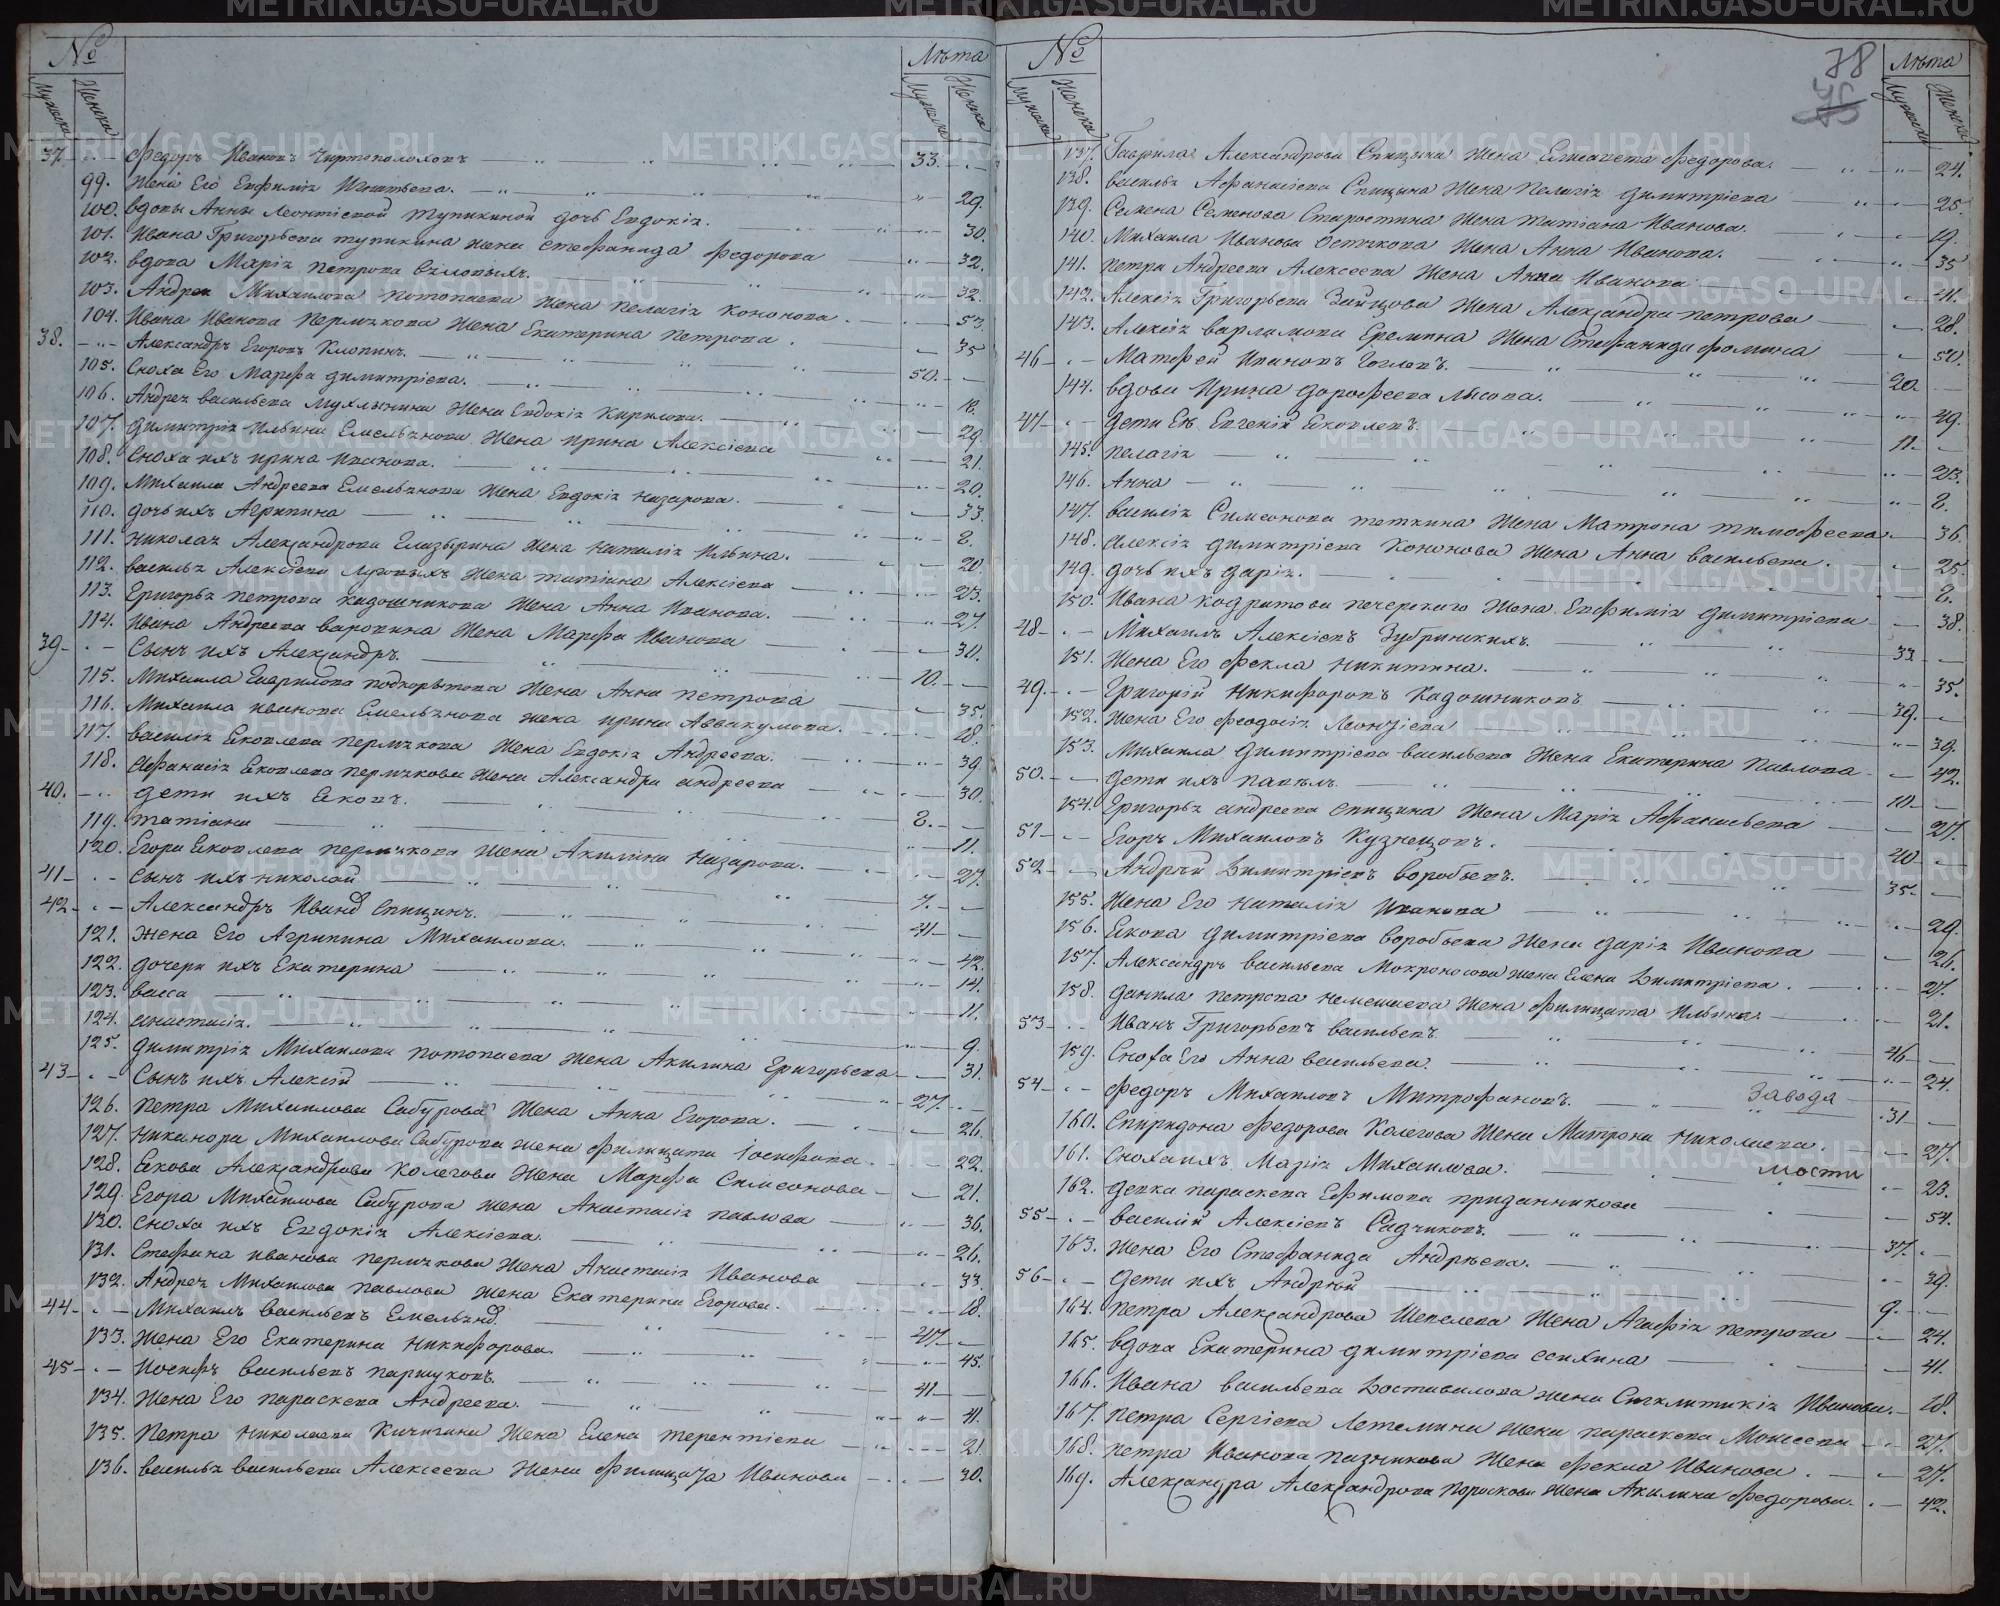 № Лѣта
Мужеска Женска Мужеска Женска
37. Федоръ Ивановъ Чертополоховъ 33.
99. Жена Его Евфимія Игнатьева. 29.
100. вдовы Анны Леонтіевой Тупикиной дочь Евдокія. 30.
101. Ивана Григорьева Тупикина жена Стефанида Федорова 32.
102. вдова Марія Петрова 32.
103. Андрея Михаилова Потопаева Жена Пелагія Кононова. 53.
104. Ивана Иванова Пермякова Жена Екатерина Петрова. 35
38. Александръ Егоровъ Клопинъ. 50.
105. Сноха Его Марфа Димитріева. 18.
106. Андрея Васильева Мухлынина Жена Евдокія Кирилова. 29.
107. Димитрія Ильина Емельянова Жена Ирина Алексіева 21.
108. Сноха ихъ Ирина Иванова. 20.
109. Михаила Андреева Емельянова Жена Евдокія Назарова. 33.
110. дочь ихъ Агрипина 8.
111. Николая Александрова Глазырина Жена Наталія Ильина. 20.
112. Василья Алексіева Луговыхъ Жена Татіана Алексіева 23.
113. Григорья Петрова Кадошникова Жена Анна Иванова. 27.
114. Ивана Андреева Варовина Жена Марфа Иванова 30.
39. Сынъ ихъ Александръ. 10.
115. Михаила Гаврилова Подкорытова Жена Анна Петрова 35.
116. Михаила Иванова Емельянова жена Ирина Аввакумова. 18.
117. Василія Яковлева Пермякова Жена Евдокія Андреева. 39
118. Афанасія Яковлева Пермякова Жена Александра Андреева 30.
40. дети ихъ Яковъ. 8.
119. Татіана 11.
120. Егора Яковлева Пермякова Жена Акилина Назарова. 27.
41. Сынъ ихъ Николай 7.
42. Александръ Иванов Спицинъ. 41.
121. Жена Его Агрипина Михаилова. 42.
122. дочери ихъ Екатерина 14.
123. Васса 11.
124. Анастасія. 9.
125. Димитрія Михаилова Потопаева Жена Акилина Григорьева 31.
43. Сынъ ихъ Алексій 27.
126. Петра Михаилова Сабурова Жена Анна Егорова. 26.
127. Никанора Михаилова Сабурова Жена Филицата Іосифова. 22.
128. Якова Александрова Колегова Жена Марфа Симеонова 21.
129. Егора Михаилова Сабурова Жена Анастасія Павлова 36.
130. Сноха ихъ Евдокія Алексіева. 26.
131. Стефана Иванова Пермякова Жена Анастасія Иванова 33.
132. Андрея Михаилова Павлова Жена Екатерина Егорова. 18.
44. Михаилъ Васильевъ Емельянов. 47.
133. Жена Его Екатерина Никифорова. 45.
45. Иосифъ Васильевъ Паршуковъ. 41.
134. Жена Его Параскева Андреева. 41.
135. Петра Николаева Кичигина Жена Елена Терентіева 21.
136. Василья Васильева Алексеева Жена Филицата Иванова 30.
№ 78 Лѣта
Мужеска Женска Мужеска Женска
137. Гаврила Александрова Спицина Жена Елисавета Федорова. 24.
138. Василья Афанасіева Спицина Жена Пелагія Димитріева 25.
139. Семена Семенова Старостина Жена Татіана Иванова. 19.
140. Михаила Иванова Жена Анна Иванова. 35
141. Петра Андреева Алексеева Жена Анна Иванова 41.
142. Алексія Григорьева Зайцова Жена Александра Петрова 28.
143. Алексія Варламова Еремина Жена Стефанида Фомина 50.
46. Матфей Ивановъ 20.
144. вдова Ирина Дорофеева Лысова. 49.
47. дети Ея Евгеній Яковлевъ. 11.
145. Пелагія 23.
146. Анна 8.
147. Василія Симеонова Теткина Жена Матрона Тимофеева. 36.
148. Алексія Димитріева Кононова Жена Анна Васильева. 25.
149. дочь ихъ Дарія. 2.
150. Ивана Кодратова Печерскаго Жена Евфимія Димитріева 38.
48. Михаилъ Алексіевъ Зубрицкихъ. 33.
151. Жена Его Фекла Никитина. 35.
49. Григорій Никифоровъ Кадошниковъ 39.
152. Жена Его Феодосія Леонтіева 39.
153. Михаила Димитріева Васильева Жена Екатерина Павлова 42.
50. дети ихъ Павелъ. 10.
154. Григорья Андреева Спицина Жена Марія Афанасьева 27.
51. Егоръ Михаиловъ Кузнецовъ. 40.
52. Андрѣй Димитріевъ Воробьевъ. 35.
155. Жена Его Наталія Иванова 29.
156. Якова Димитріева Воробьева Жена Дарія Иванова 26.
157. Александръ Васильева Мокроносова Жена Елена Димитріева. 27.
158. Данила Петрова Немешаева Жена Филицата Ильина. 21.
53. Иванъ Григорьевъ Васильевъ. 46.
159. Сноха Его Анна Васильева. 24.
54. Федоръ Михаиловъ Митрофановъ. Завода 31.
160. Спиридона Федорова Колегова Жена Матрона Николаева. 27.
161. Сноха ихъ Марія Михаилова. мости 23.
162. девка Параскева Ефимова Приданникова 54.
55. Василій Алексіевъ Садчиковъ. 37.
163. Жена Его Стефанида Андрѣева. 39.
56. дети ихъ Андрѣй 9.
164. Петра Александрова Шепелева Жена Агафія Петрова 24.
165. вдова Екатерина Димитріева Есихина 41.
166. Ивана Васильева Доставалова Жена Синклитикія Иванова. 18.
167. Петра Сергіева Летемина Жена Параскева Моисеева 27.
168. Петра Иванова Жена Фекла Иванова. 27.
169. Александра Александрова Жена Акилина Федорова. 42.
METRIKI.GASO-URAL.RU